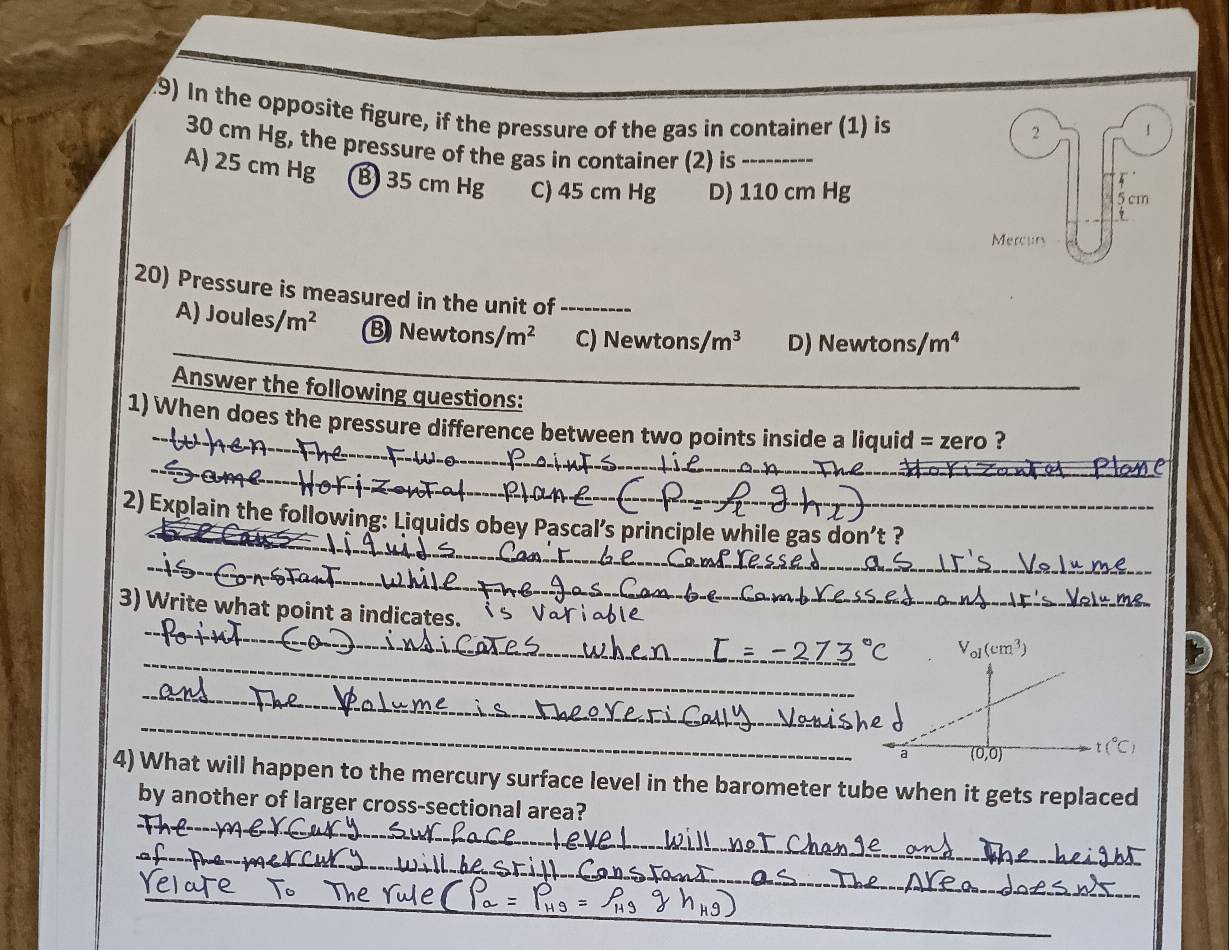 .9) In the opposite figure, if the pressure of the gas in container (1) is
30 cm Hg, the pressure of the gas in container (2) is ---------
A) 25 cm Hg B) 35 cm Hg C) 45 cm Hg D) 110 cm Hg
2 1
5 cm
Mercury
20) Pressure is measured in the unit of ---------
A) Joules/m² B) Newtons/m² C) Newtons/m³ D) Newtons/m⁴
Answer the following questions:
1) When does the pressure difference between two points inside a liquid = zero ?
when The Two Points lie on The Horizontal Plane
Same Horizontal Plane (P = ρ_L g h_L)
2) Explain the following: Liquids obey Pascal's principle while gas don't ?
because liquids Can't be Compressed as It's Volume
is Constant while The gas Can be Combressed and It's Volume
is Variable
3) Write what point a indicates.
Point (a) indicates when T = -273 °C
and The Volume is Theoverically Vanished
Vol(cm³)
a (0,0) t(°C)
4) What will happen to the mercury surface level in the barometer tube when it gets replaced
by another of larger cross-sectional area?
The mercury surface level will not Change and The height
of The mercury will be still Constant as The Area doesn't
relate To The rule (Pa = PHg = ρHg g hHg)